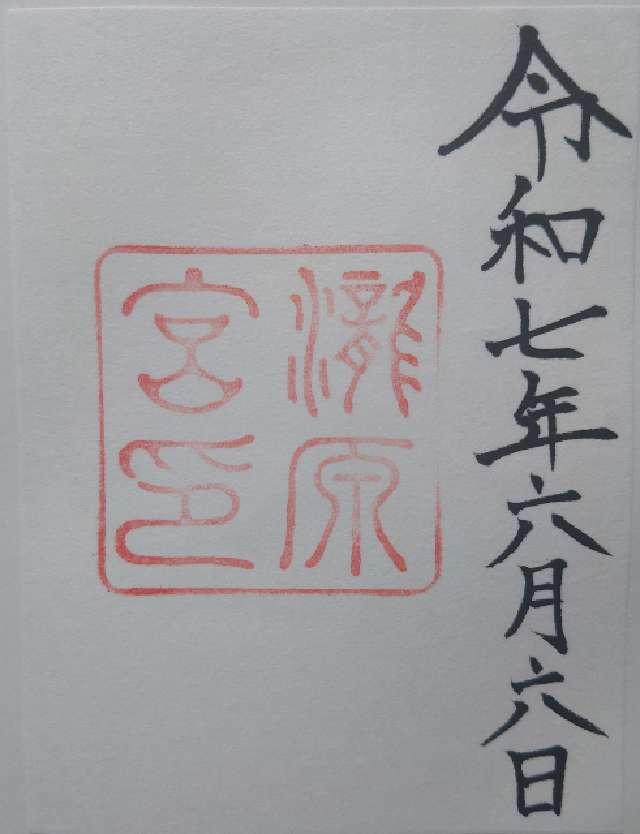 令和七年六月六日
瀧原
宮印